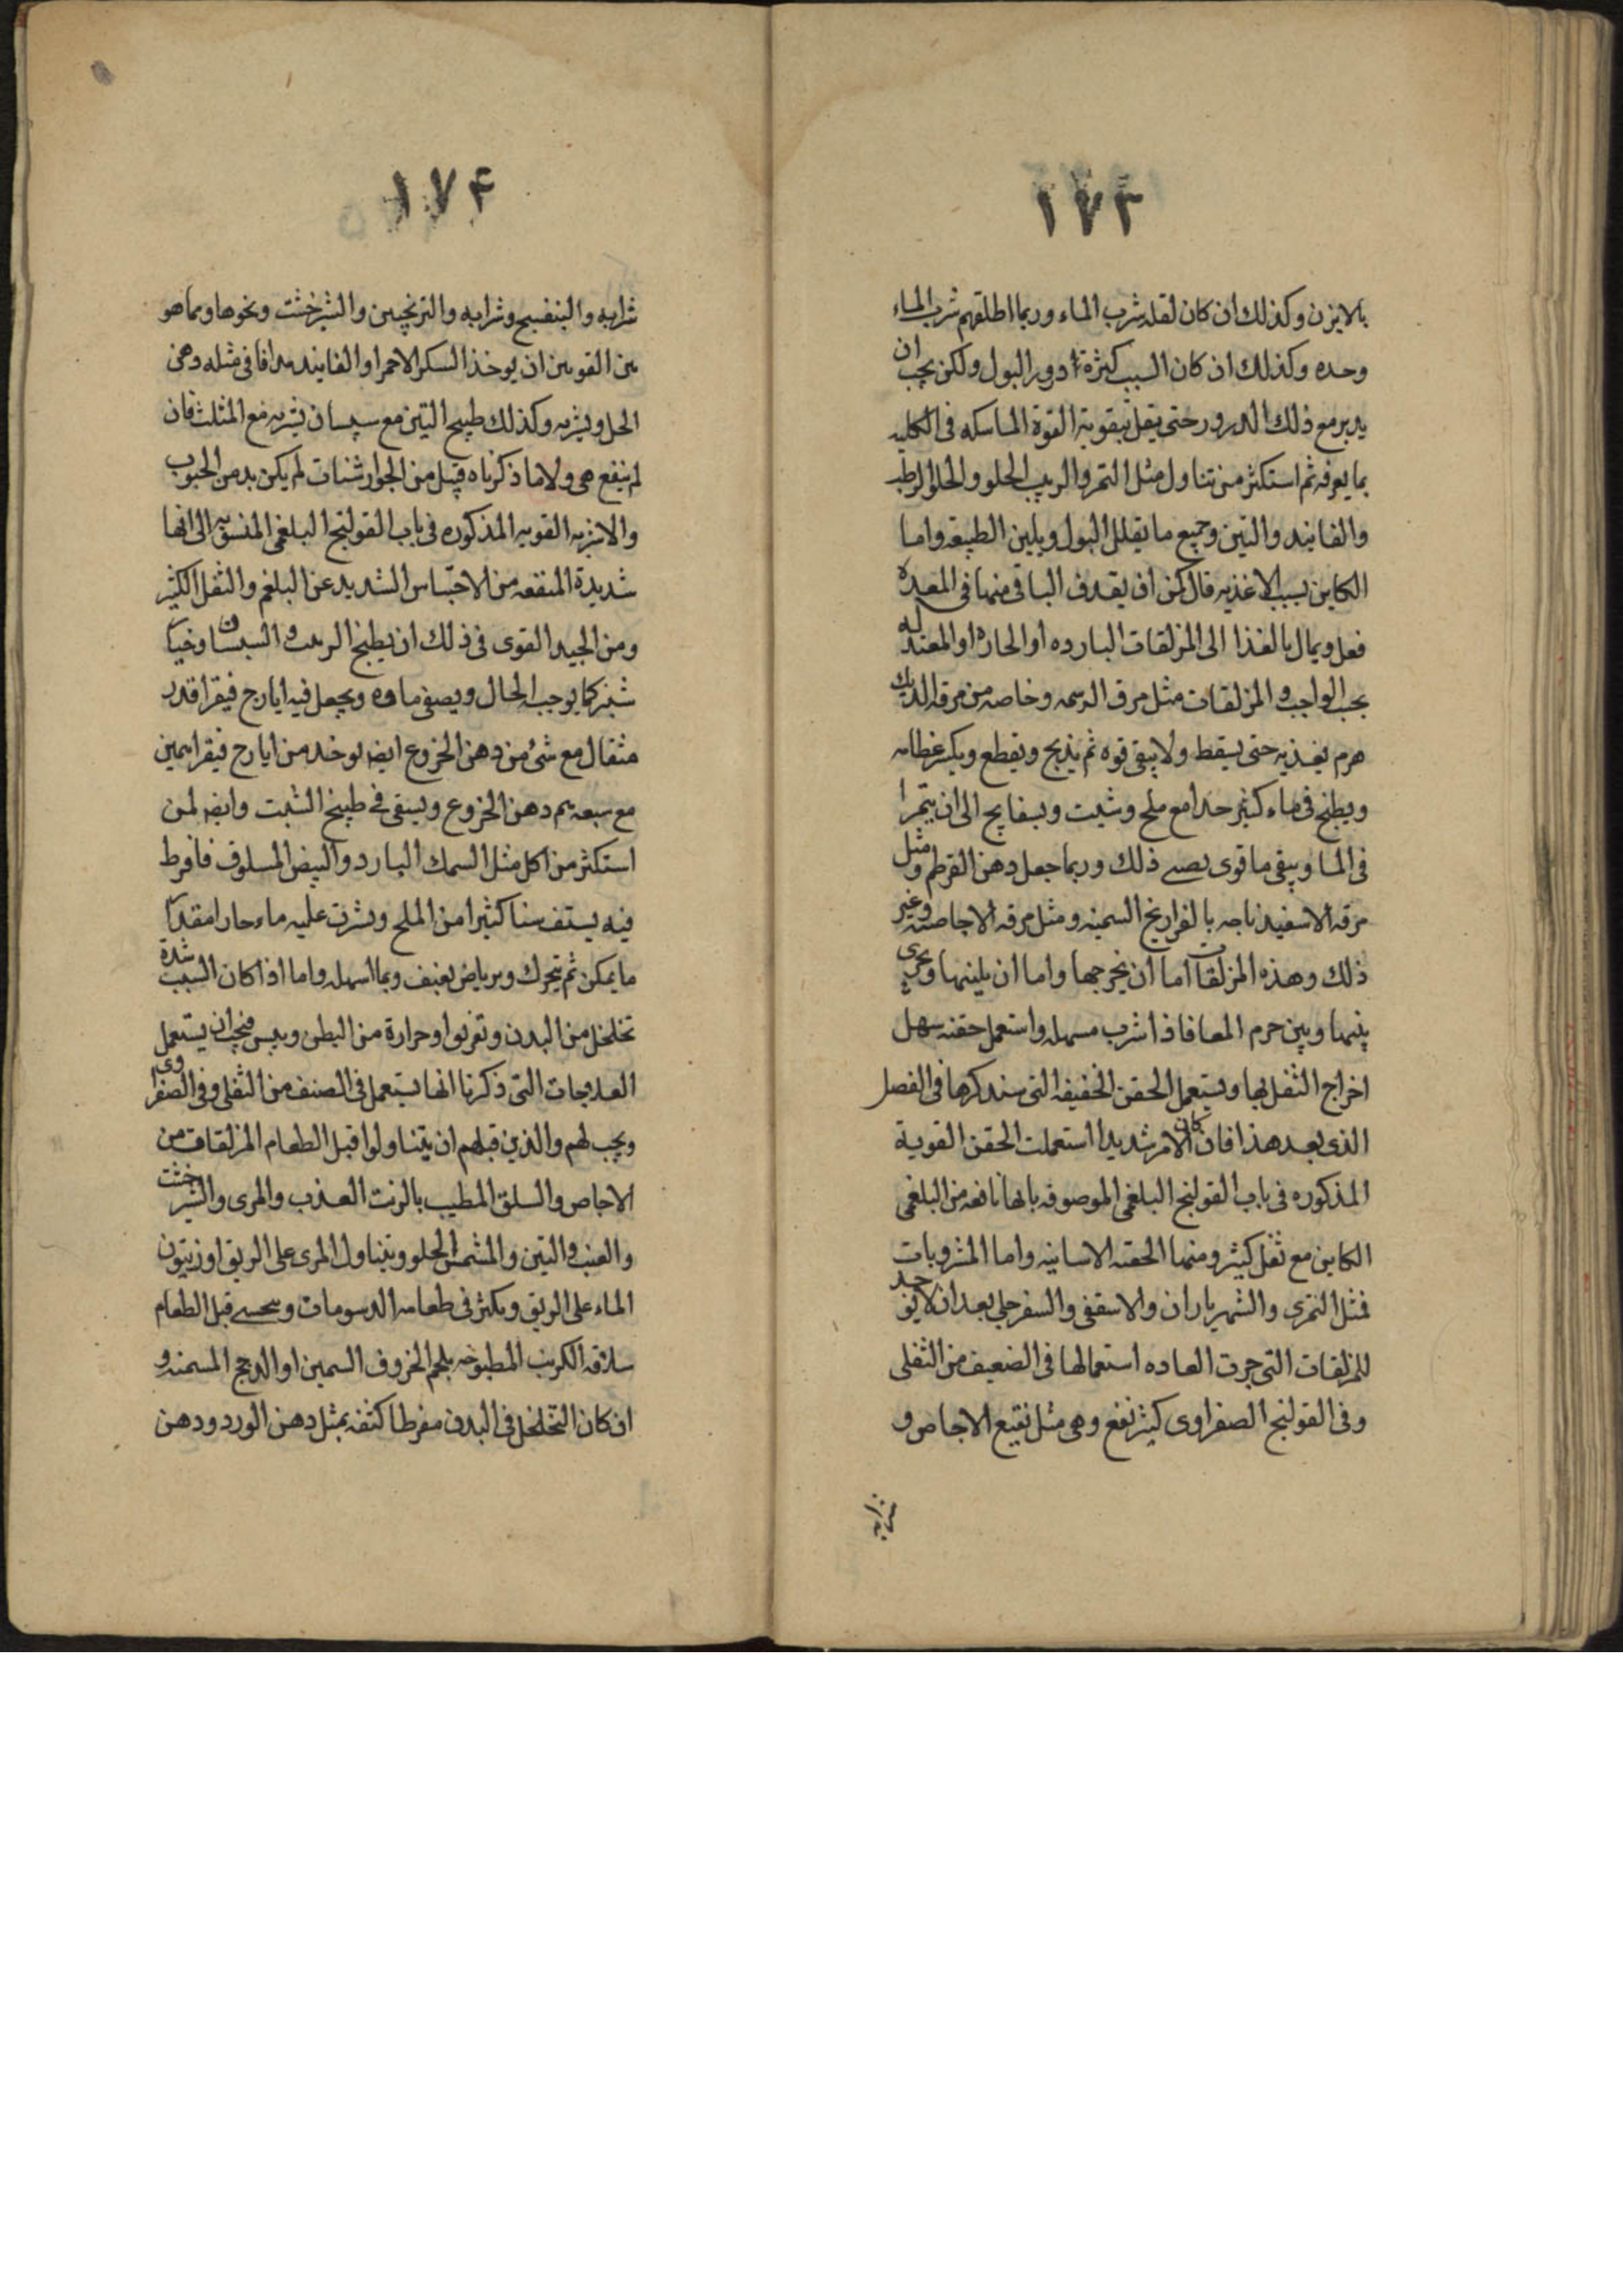 ١٧٣
بالابزن وكذلك ان كان لقله شرب الماء وربما اطلقهم شرب الماء
وحده وكذلك ان كان السبب كثرة درور البول ولكن يجب ان
يدبر مع ذلك الدرور حتى يقل بتقوية القوة الماسكه فى الكليه
بما يعرفه ثم استكثر من تناول مثل التمر والزبيب الحلو والحلوا الرطب
والفانيد والتين وجميع ما يقلل البول ويلين الطبيعه واما
الكاين بسبب الاغذيه فان امكن ان يقذف الباقى منها فى المعده
فعل ويمال بالغذا الى المزلقات البارده او الحاره او المعتدله
بحسب الواجب والمزلقات مثل مرق الدسمه وخاصه من مرقه الديك
هرم يغذيه حتى يسقط ولا يبقى قوه ثم يذبح ويقطع ويكسر عظامه
ويطبخ فى ماء كثير جدا مع ملح وشبت وبسفايج الى ان يتهرا
فى الماء ويبقى ما قوى يحسى ذلك وربما جعل دهن القرطم ومثل
مرقه الاسفيدناجه بالفراريج السمينه ومثل مرقه الاجاصيه وغير
ذلك وهذه المزلقات اما ان يخرجها واما ان يلينها ويجرى
بينها وبين جرم المعا فاذا شرب مسهله واستعمل حقنه سهل
اخراج الثفل بها ويستعمل الحقن الخفيفه التى سنذكرها فى الفصل
الذى بعد هذا فان كان الامر شديدا استعملت الحقن القوية
المذكوره فى باب القولنج البلغمى الموصوفه بانها نافعه من البلغمى
الكاين مع ثفل كثير ومنها الحقنه الاسانيه واما المشروبات
فمثل التمرى والشهرياران والاسقفى والسفرجلى بعد ان لا يوجد
للمزلقات التى جرت العاده استعمالها فى الضعيف من الثفلى
وفى القولنج الصفراوى كثير نفع وهى مثل نقيع الاجاص و
شرابه
١٧۴
شرابه والبنفسج وشرابه والترنجبين والشيرخشت ونحوها ومما هو
بين القومين ان يوخذ السكر الاحمر او الفانيد مدافا فى مثله دهن
الحل ويشربه وكذلك طبيخ التين مع سپسان يشربه مع المثلث فان
لم ينفع هى ولا ما ذكرناه قبل من الجوارشنات لم يكن بد من الحبوب
والاشربه القويه المذكوره فى باب القولنج البلغمى المنسوبه الى انها
شديدة المنفعه من الاحتباس الشديد عن البلغم والثفل الكثير
ومن الجيد القوى فى ذلك ان يطبخ الزبيب والسبستان وخيار
شنبر كما يوجب الحال ويصفى ماوه ويجعل فيه ايارج فيقرا قدر
مثقال مع شئ من دهن الخروع ايضا يوخد من ايارج فيقرا
مع سبعه دهن الخروع ويسقى فى طبيخ الشبت وايضا لمن
استكثر من اكل مثل السمك البارد والبيض المسلوق فافرط
فيه يستف سفا كثيرا من الملح ويشرب عليه ماء حارا مقدار
ما يمكن ثم يتحرك ويرياض بعنف وبما اسهله واما اذا كان السبب شدة
تخلخل من البدن وتعرقا وحرارة من البطن ويبس فيجب ان يستعمل
العلاجات التى ذكرنا انها يستعمل فى الصنف من الثفلى وفى الصفراوى
ويجب لهم والذين قبلهم ان يتناولوا قبل الطعام المزلقات من
الاجاص والسلق المطيب بالزيت العذب والمرى والشيرخشت
والعنب والتين والمشمش الحلو ويتناول المرى على الريق او زيتون
الماء على الريق ويكثر فى طعامه الدسومات ويحسى قبل الطعام
سلاقه الكرنب المطبوخه بلحم الخروف السمين او الدجج المسمنه و
ان كان التخلخل فى البدن مفرطا كثفه بمثل دهن الورد ودهن